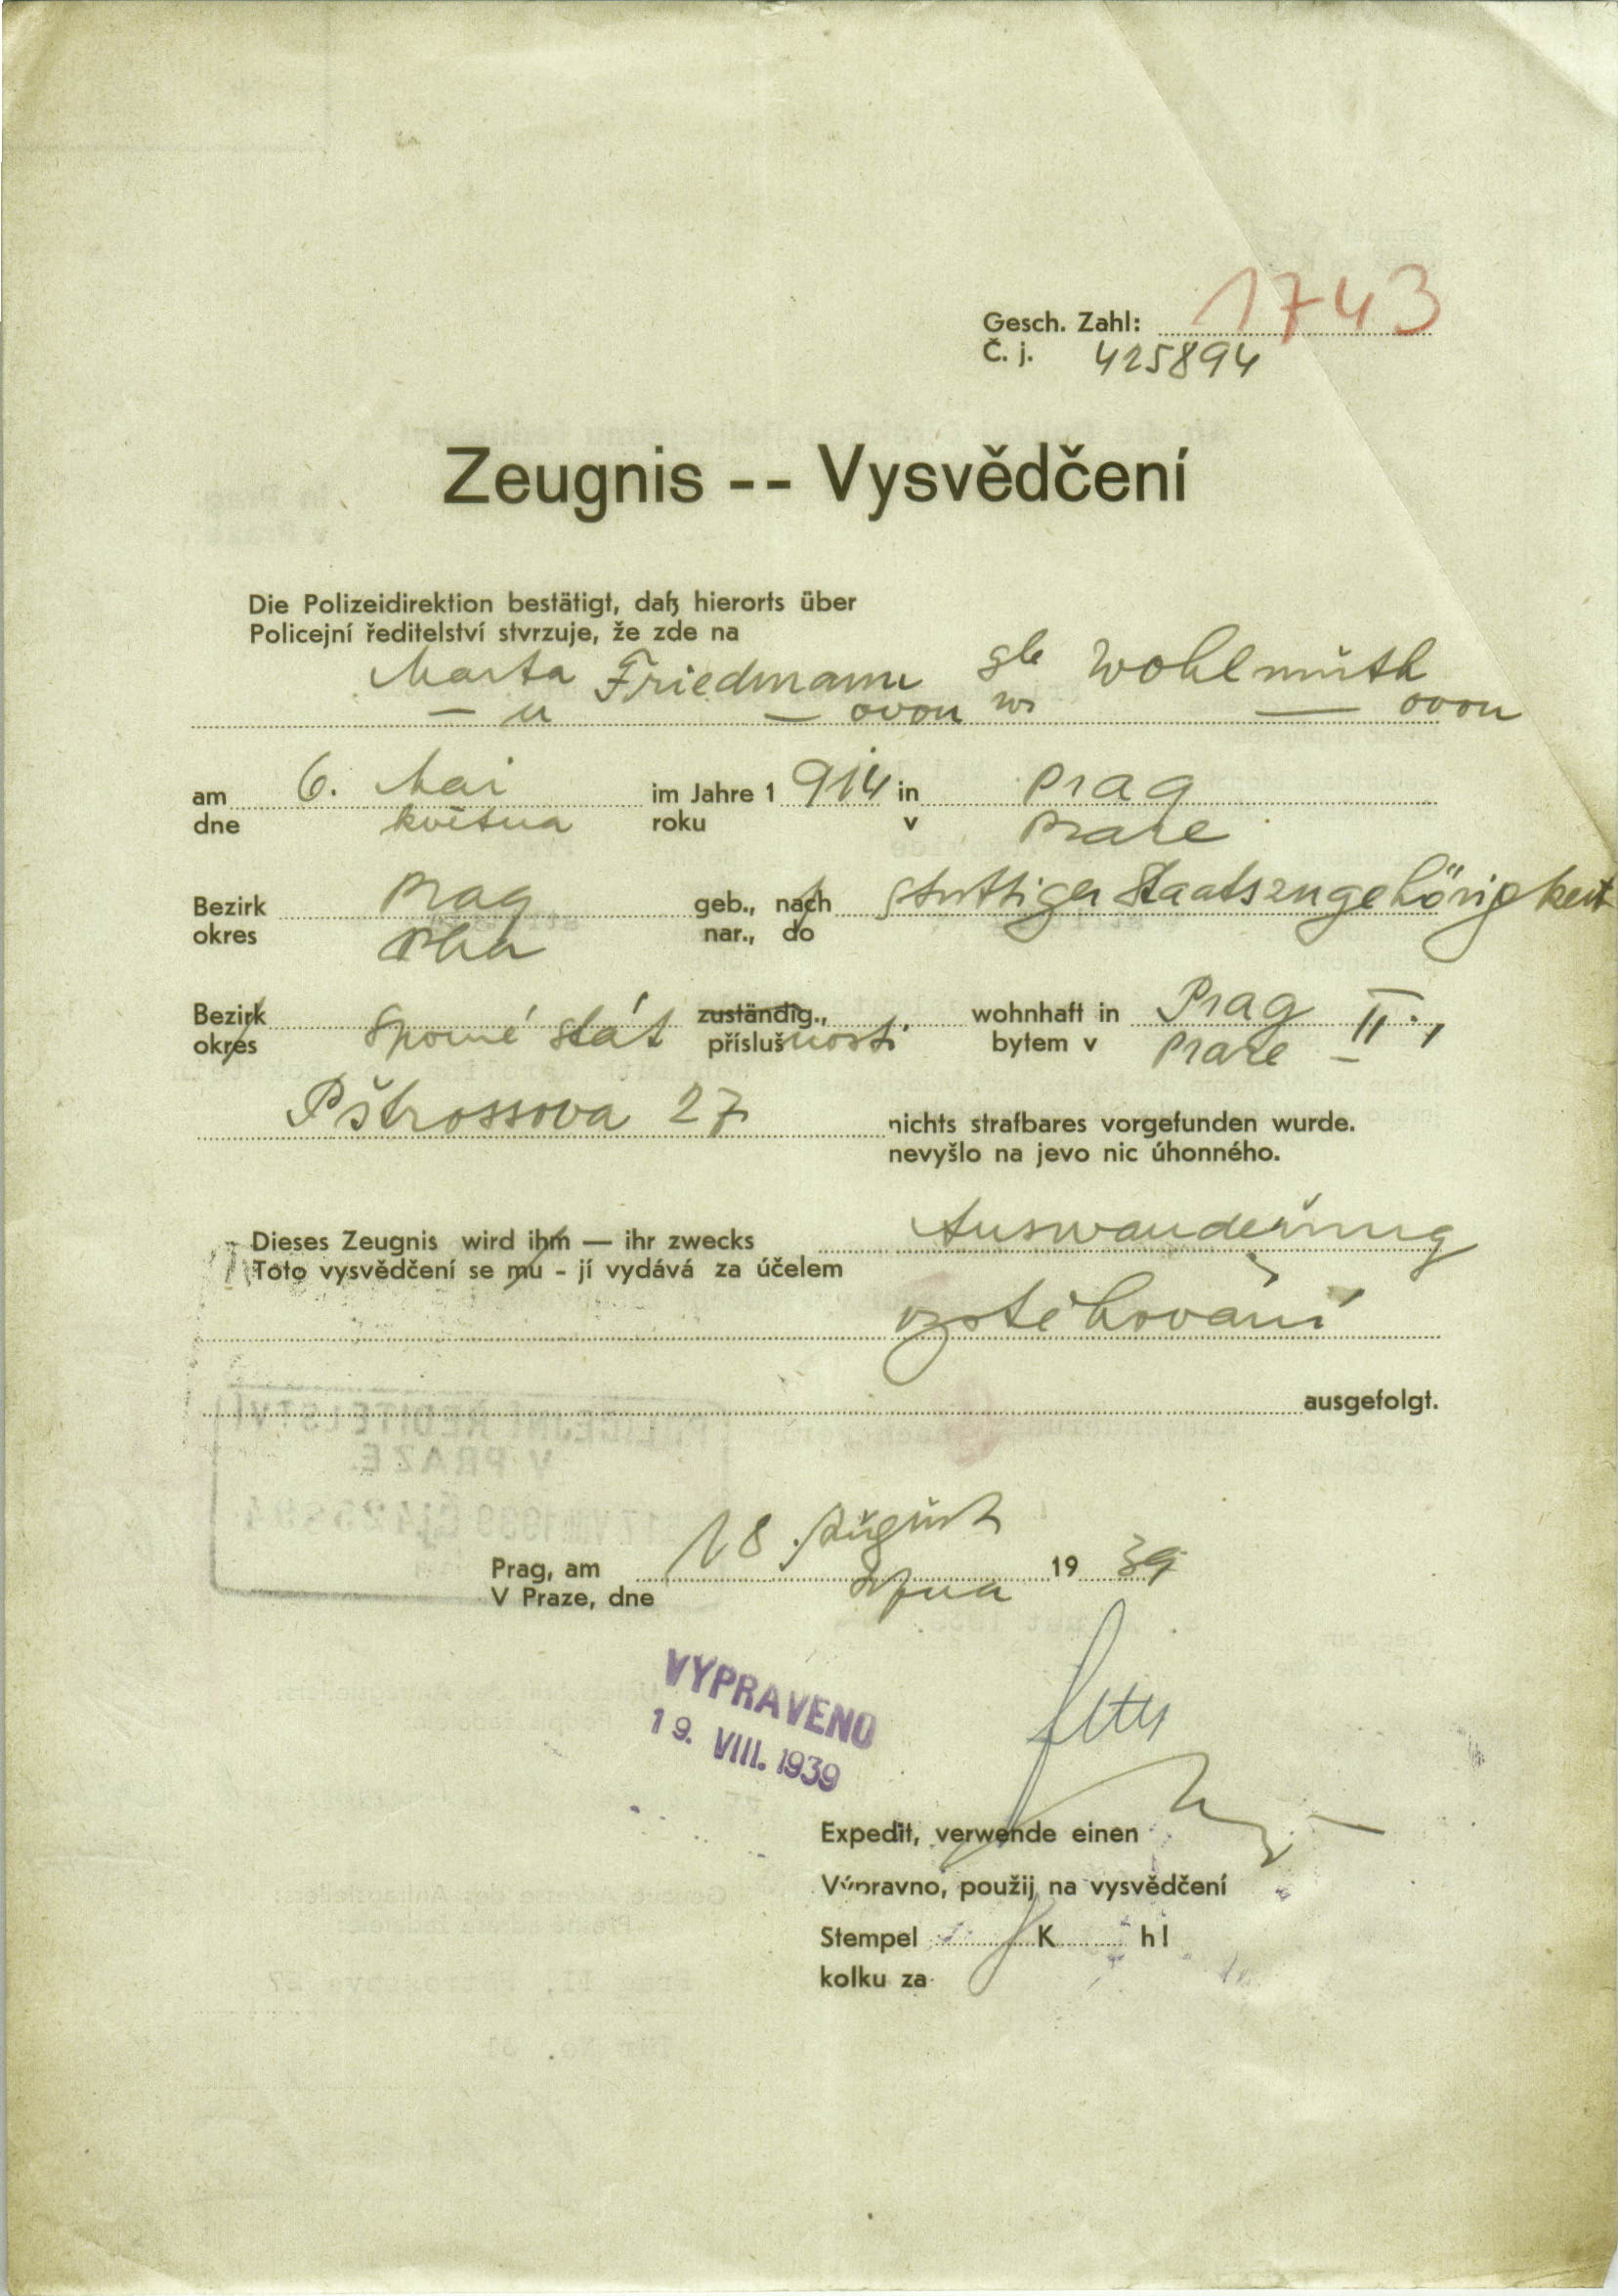 Gesch. Zahl: 1743
Č. j. 425894
Zeugnis -- Vysvědčení
Die Polizeidirektion bestätigt, daß hierorts über
Policejní ředitelství stvrzuje, že zde na
Marta Friedmann gb Wohlmuth
— u — ovou — ovou
am 6. Mai im Jahre 1 914 in Prag
dne května roku v Praze
Bezirk Prag geb., nach strittiger Staatszugehörigkeit
okres Pha nar., do
Bezirk zuständig., wohnhaft in Prag II.,
okres sporné stát příslušnosti bytem v Praze —
Pštrossova 27 nichts strafbares vorgefunden wurde.
nevyšlo na jevo nic úhonného.
Dieses Zeugnis wird ihm — ihr zwecks Auswanderung
Toto vysvědčení se mu - jí vydává za účelem
vystěhování
ausgefolgt.
POLICEJNÍ ŘEDITELSTVÍ
V PRAZE
17 VIII 1939 Čj 425894
Prag, am 18. August 19 39
V Praze, dne srpna
VYPRAVENO
19. VIII. 1939
Expedit, verwende einen
Výpravno, použij na vysvědčení
Stempel K hl
kolku za